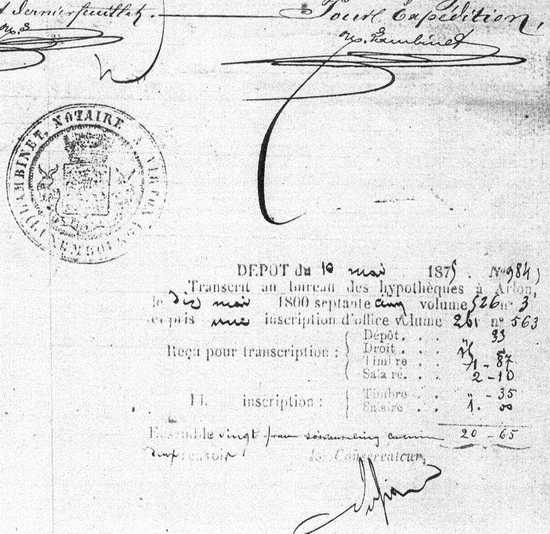 et dernier feuillet.
Pour Expédition,
Lambinet
LAMBINET, NOTAIRE A VIRTON (LUXEMBOURG)
DÉPOT du 10 mai 1875 N° 984
Transcrit au bureau des hypothèques à Arlon,
le dix mai 1800 septante cinq volume 526 n° 3
et pris une inscription d'office volume 261 n° 563
Dépôt. . . " 33
Reçu pour transcription : Droit . . .
Timbre . . 1 - 87
Salaire. . . 2 - 10
Id. inscription : Timbre . . " - 35
Salaire . . 1. 00
Ensemble vingt francs soixante cinq centimes 20 - 65
Le Conservateur,